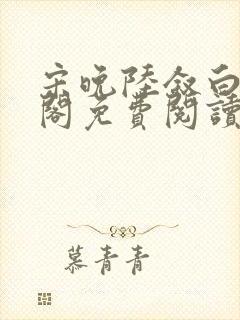 宋晚陸敘白
閣免費閱讀
慕青青